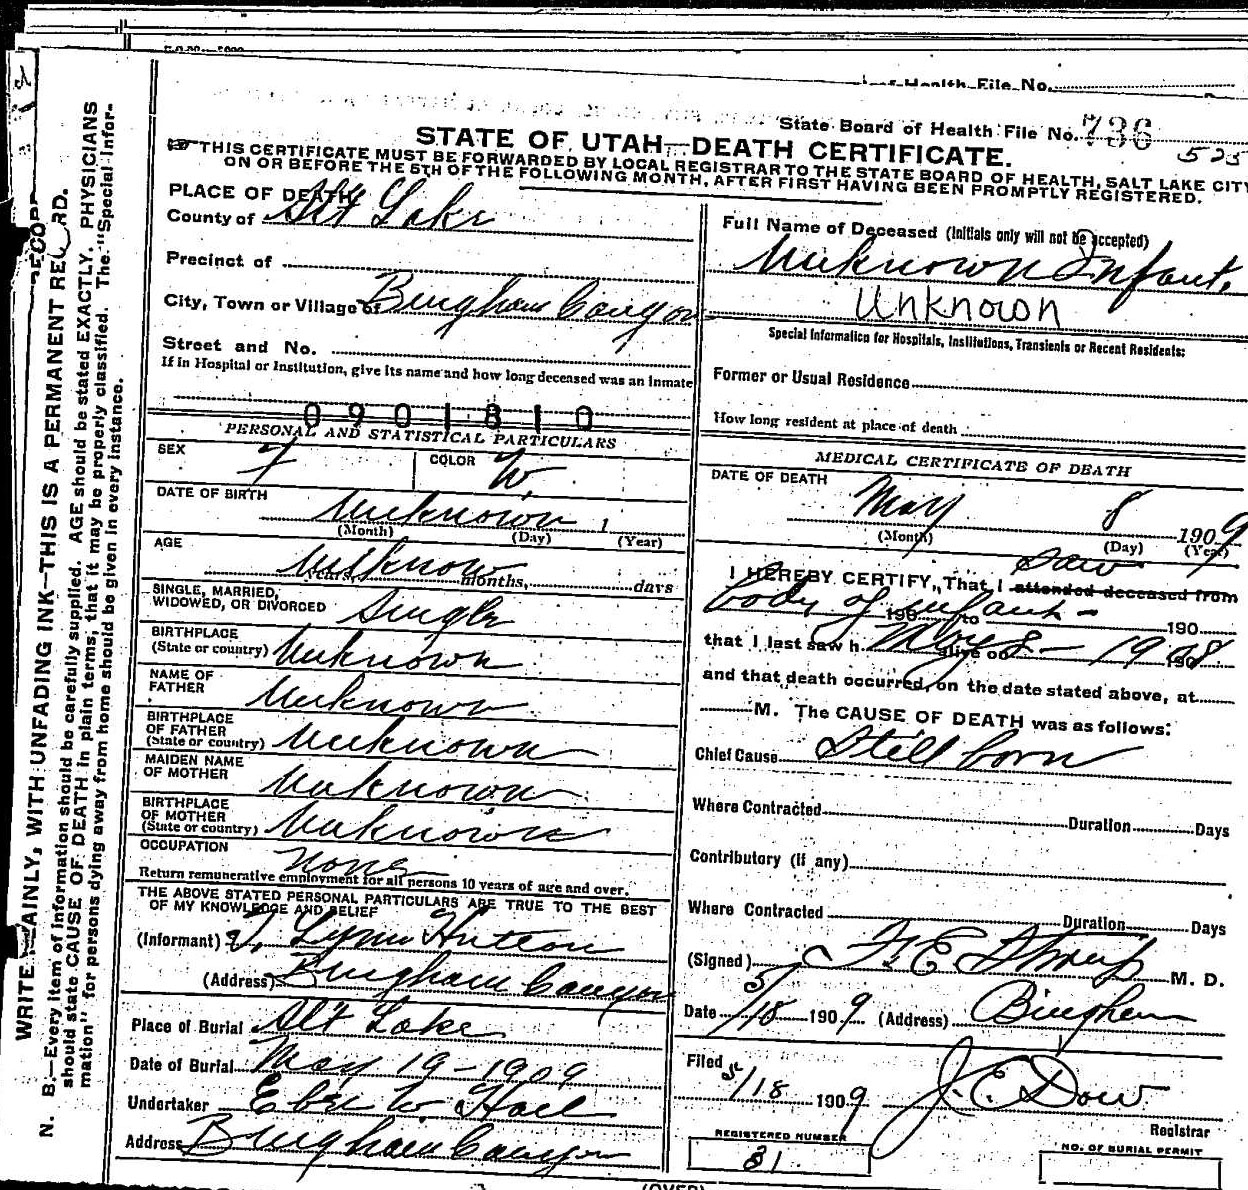 of Health File No.
State Board of Health File No. 736
525
STATE OF UTAH—DEATH CERTIFICATE.
THIS CERTIFICATE MUST BE FORWARDED BY LOCAL REGISTRAR TO THE STATE BOARD OF HEALTH, SALT LAKE CITY
ON OR BEFORE THE 5TH OF THE FOLLOWING MONTH, AFTER FIRST HAVING BEEN PROMPTLY REGISTERED.
WRITE PLAINLY, WITH UNFADING INK—THIS IS A PERMANENT RECORD.
N. B.—Every item of information should be carefully supplied. AGE should be stated EXACTLY. PHYSICIANS
should state CAUSE OF DEATH in plain terms, that it may be properly classified. The "Special Infor-
mation" for persons dying away from home should be given in every instance.
PLACE OF DEATH
County of Salt Lake
Precinct of
City, Town or Village of Bingham Canyon
Street and No.
If in Hospital or Institution, give its name and how long deceased was an inmate
0901810
PERSONAL AND STATISTICAL PARTICULARS
SEX F COLOR W.
DATE OF BIRTH Unknown 1
(Month) (Day) (Year)
AGE Unknown years, months, days
SINGLE, MARRIED,
WIDOWED, OR DIVORCED Single
BIRTHPLACE
(State or country) Unknown
NAME OF
FATHER Unknown
BIRTHPLACE
OF FATHER
(State or country) Unknown
MAIDEN NAME
OF MOTHER Unknown
BIRTHPLACE
OF MOTHER
(State or country) Unknown
OCCUPATION None
Return remunerative employment for all persons 10 years of age and over.
THE ABOVE STATED PERSONAL PARTICULARS ARE TRUE TO THE BEST
OF MY KNOWLEDGE AND BELIEF
(Informant) Lynn Hutton
(Address) Bingham Canyon
Place of Burial Salt Lake
Date of Burial May 19-1909
Undertaker Eber W. Hall
Address Bingham Canyon
Full Name of Deceased (Initials only will not be accepted)
Unknown Infant.
Unknown
Special Information for Hospitals, Institutions, Transients or Recent Residents:
Former or Usual Residence
How long resident at place of death
MEDICAL CERTIFICATE OF DEATH
DATE OF DEATH
May 8 1909
(Month) (Day) (Year)
saw
I HEREBY CERTIFY, That I attended deceased from
body of infant - 190 to 190
that I last saw h alive on May 8 - 1908 190
and that death occurred, on the date stated above, at
M. The CAUSE OF DEATH was as follows:
Chief Cause Still born
Where Contracted Duration Days
Contributory (if any)
Where Contracted Duration Days
(Signed) F. E. Straup M. D.
Date 5/18 1909. (Address) Bingham
Filed 5/18 1909 J. E. Dow
Registrar
REGISTERED NUMBER
81
NO. OF BURIAL PERMIT
(OVER)